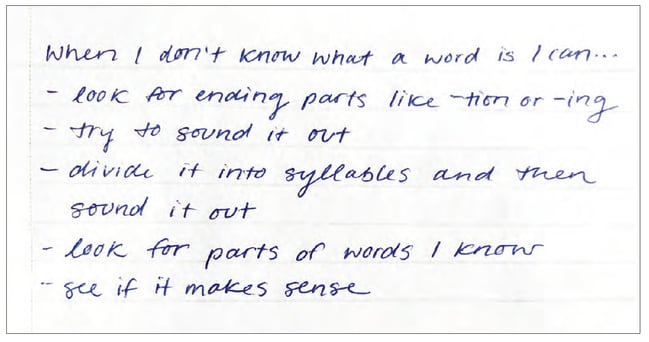 When I don't know what a word is I can...
- look for ending parts like -tion or -ing
- try to sound it out
- divide it into syllables and then
sound it out
- look for parts of words I know
- see if it makes sense